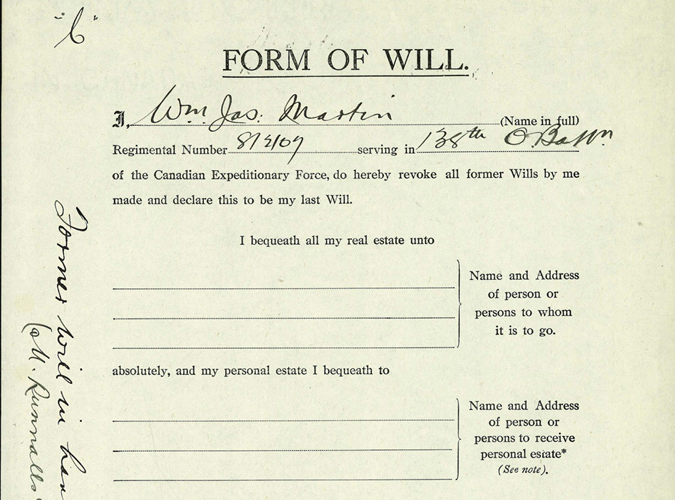 "C"
FORM OF WILL.
I, Wm. Jas. Martin (Name in full)
Regimental Number serving in 138th O. Battn
of the Canadian Expeditionary Force, do hereby revoke all former Wills by me
made and declare this to be my last Will.
I bequeath all my real estate unto
Name and Address
of person or
persons to whom
it is to go.
absolutely, and my personal estate I bequeath to
Name and Address
of person or
persons to receive
personal estate*
(See note).
Former will in
(M. Runnalls